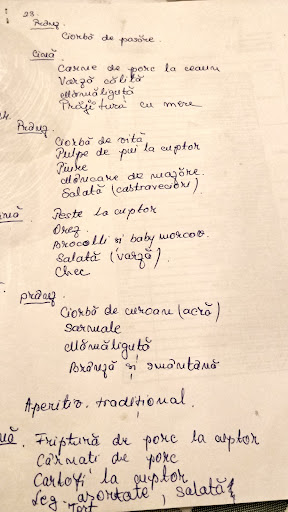 23.
Prânz.
Ciorbă de pasăre.
Cină
Carne de porc la ceaun
Varză călită
Mămăliguță
Prăjitură cu mere
Prânz.
Ciorbă de vită
Pulpe de pui la cuptor
Piure
Mâncare de mazăre.
Salată (castraveciori)
Peste la cuptor
Orez
Brocolli si baby morcov.
Salată (varză)
Chec
prânz
Ciorbă de curcan (acră)
Sarmale
Mămăliguță
Brânză și smântână
Aperitiv. tradițional.
Friptură de porc la cuptor
Cârnati de porc
Cartofi la cuptor
Leg. asortate, salată
Tort